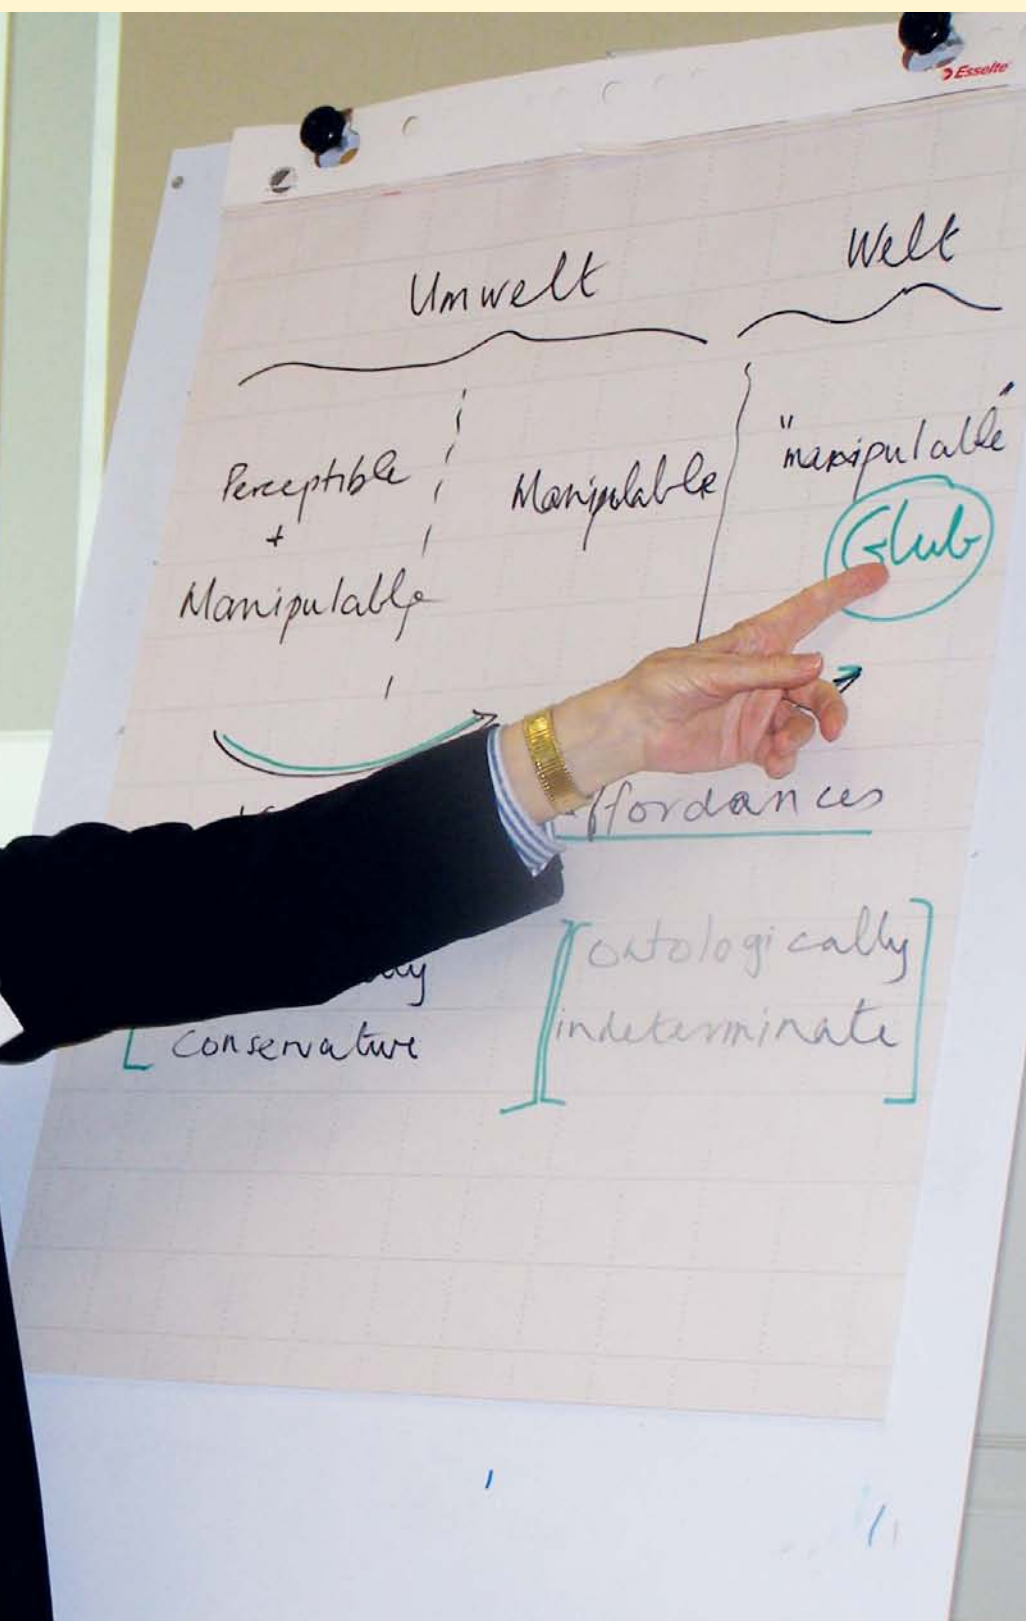 Esselte
Umwelt
Welt
Perceptible
+
Manipulable
Manipulable
"manipulable"
Glub
ffordances
conservative
ontologically
indeterminate